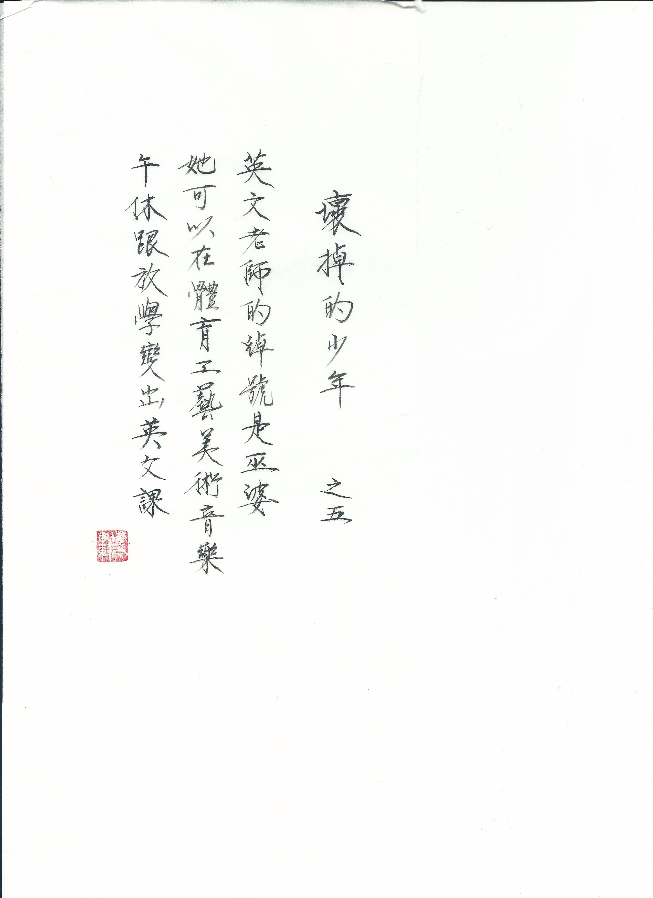 壞掉的少年 之五
英文老師的綽號是巫婆
她可以在體育工藝美術音樂
午休跟放學變出英文課